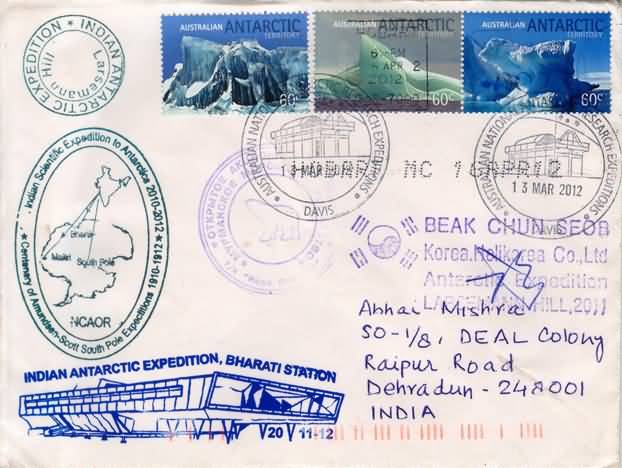 INDIAN ANTARCTIC EXPEDITION
Larsemann Hill
AUSTRALIAN ANTARCTIC TERRITORY
60c
AUSTRALIAN ANTARCTIC TERRITORY
60c
AUSTRALIAN ANTARCTIC TERRITORY
60c
2 APR
2012
AUSTRALIAN NATIONAL RESEARCH EXPEDITIONS
13 MAR
DAVIS
MC 16APR12
AUSTRALIAN NATIONAL RESEARCH EXPEDITIONS
13 MAR 2012
DAVIS
Indian Scientific Expedition to Antarctica 2010-2012
Bharati
Maitri South Pole
NCAOR
Centenary of Amundsen-Scott South Pole Expeditions 1910-1912
BEAK CHUN SEOB
Korea, Co.,Ltd
Antarctic Expedition
HILL, 2011
Abhai Mishra
SO-1/8, DEAL Colony
Raipur Road
Dehradun - 248001
INDIA
INDIAN ANTARCTIC EXPEDITION, BHARATI STATION
20 11-12